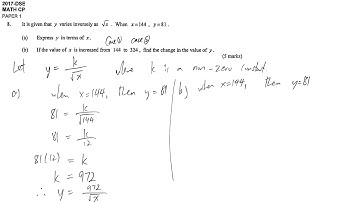 2017-DSE
MATH CP
PAPER 1
8. It is given that y varies inversely as √x . When x=144 , y=81 .
(a) Express y in terms of x .
(b) If the value of x is increased from 144 to 324 , find the change in the value of y .
(5 marks)
Let y = k/√x where k is a non-zero constant
a) when x=144, then y=81
81 = k/√144
81 = k/12
81(12) = k
k = 972
∴ y = 972/√x
b) when x=144, then y=81